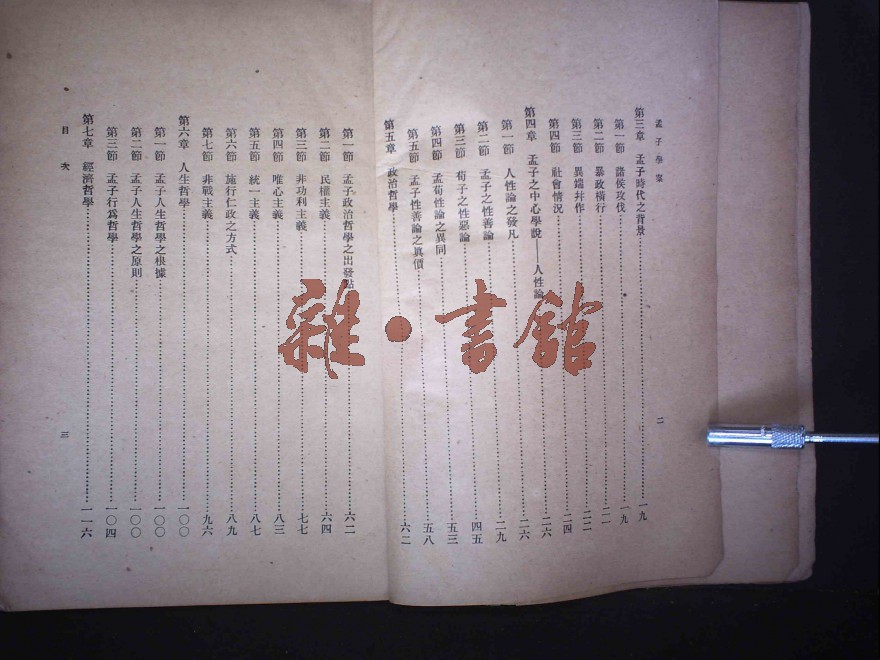 孟子學案
第三章　孟子時代之背景……一九
第一節　諸侯攻伐……一九
第二節　暴政橫行……二一
第三節　異端幷作……二二
第四節　社會情況……二四
第四章　孟子之中心學說——人性論……二六
第一節　人性論之發凡……二六
第二節　孟子之性善論……二九
第三節　荀子之性惡論……四五
第四節　孟荀性論之異同……五三
第五節　孟子性善論之眞價……五八
第五章　政治哲學……六二
二
第一節　孟子政治哲學之出發點……六二
第二節　民權主義……六四
第三節　非功利主義……七七
第四節　唯心主義……八三
第五節　統一主義……八七
第六節　施行仁政之方式……八九
第七節　非戰主義……九六
第六章　人生哲學……一〇〇
第一節　孟子人生哲學之根據……一〇〇
第二節　孟子人生哲學之原則……一〇〇
第三節　孟子行爲哲學……一〇四
第七章　經濟哲學……一一六
目次
三
雜·書館